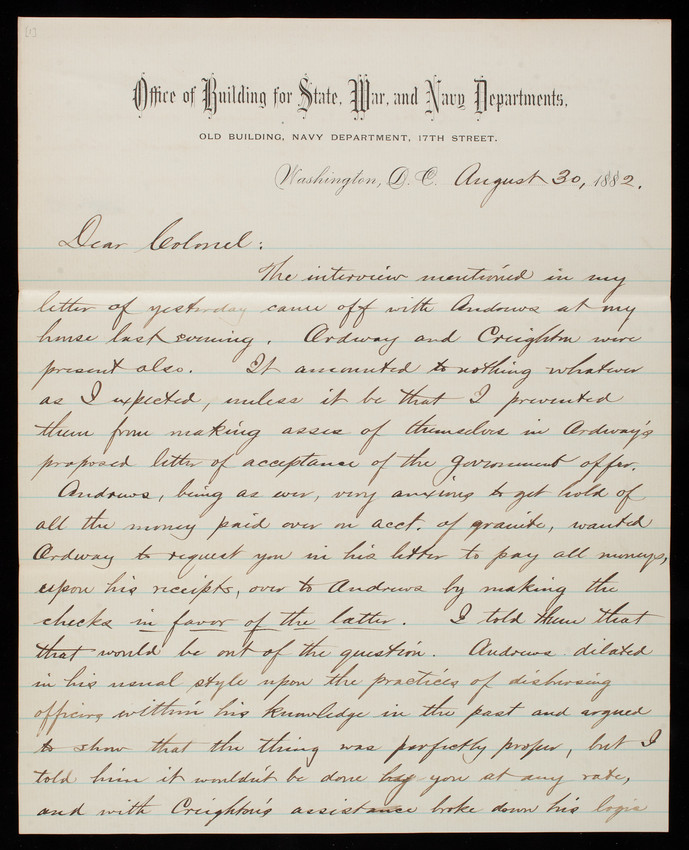 [1]
Office of Building for State, War, and Navy Departments,
OLD BUILDING, NAVY DEPARTMENT, 17TH STREET.
Washington, D. C. August 30, 1882.
Dear Colonel:
The interview mentioned in my
letter of yesterday came off with Andrews at my
house last evening. Ordway and Creighton were
present also. It amounted to nothing whatever
as I expected, unless it be that I prevented
them from making asses of themselves in Ordway's
proposed letter of acceptance of the government offer.
Andrews, being as ever, very anxious to get hold of
all the money paid over on acct. of granite, wanted
Ordway to request you in his letter to pay all moneys,
upon his receipts, over to Andrews by making the
checks in favor of the latter. I told them that
that would be out of the question. Andrews dilated
in his usual style upon the practices of disbursing
officers within his knowledge in the past and argued
to show that the thing was perfectly proper, but I
told him it wouldn't be done by you at any rate,
and with Creighton's assistance broke down his logic